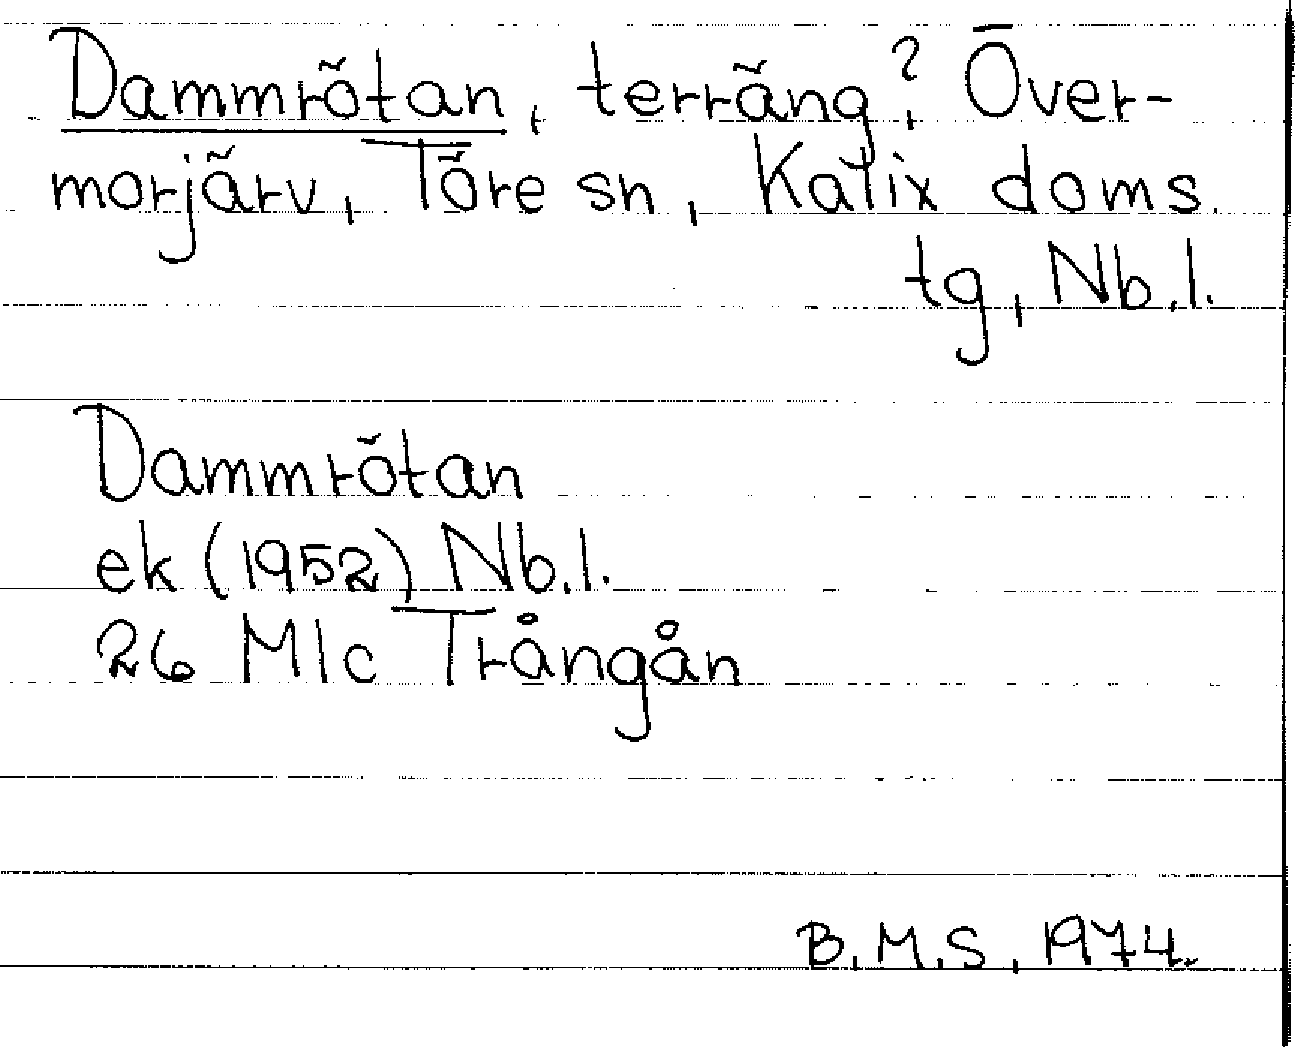 Dammrötan, terräng? Över-
morjärv, Töre sn, Kalix doms.
tg, Nb.l.
Dammrötan
ek (1952) Nb.l.
26 M1c Trångån
B.M.S, 1974.